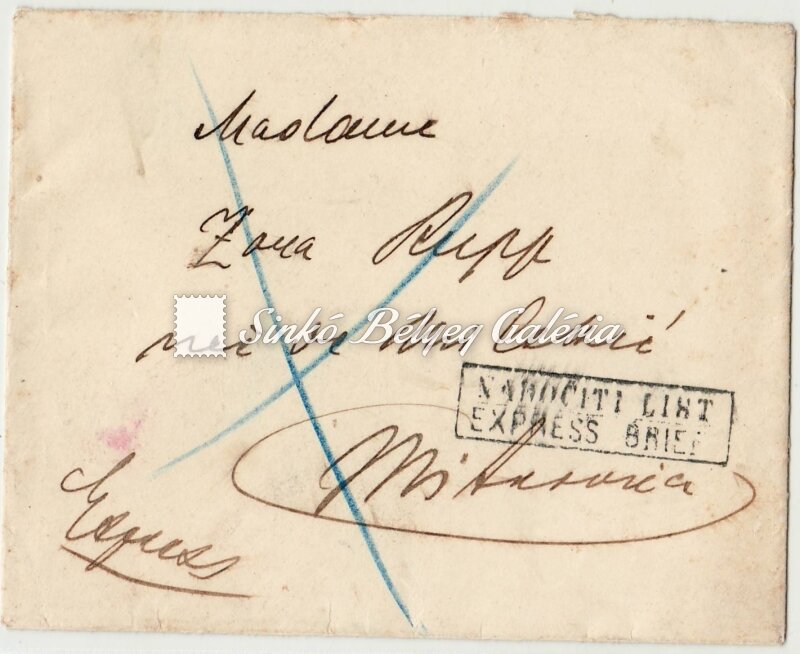 Madame
Zora Rupp
née de
Sinkó Bélyeg Galéria
NAROČITI LIST
EXPRESS BRIEF
Mitrovica
Express